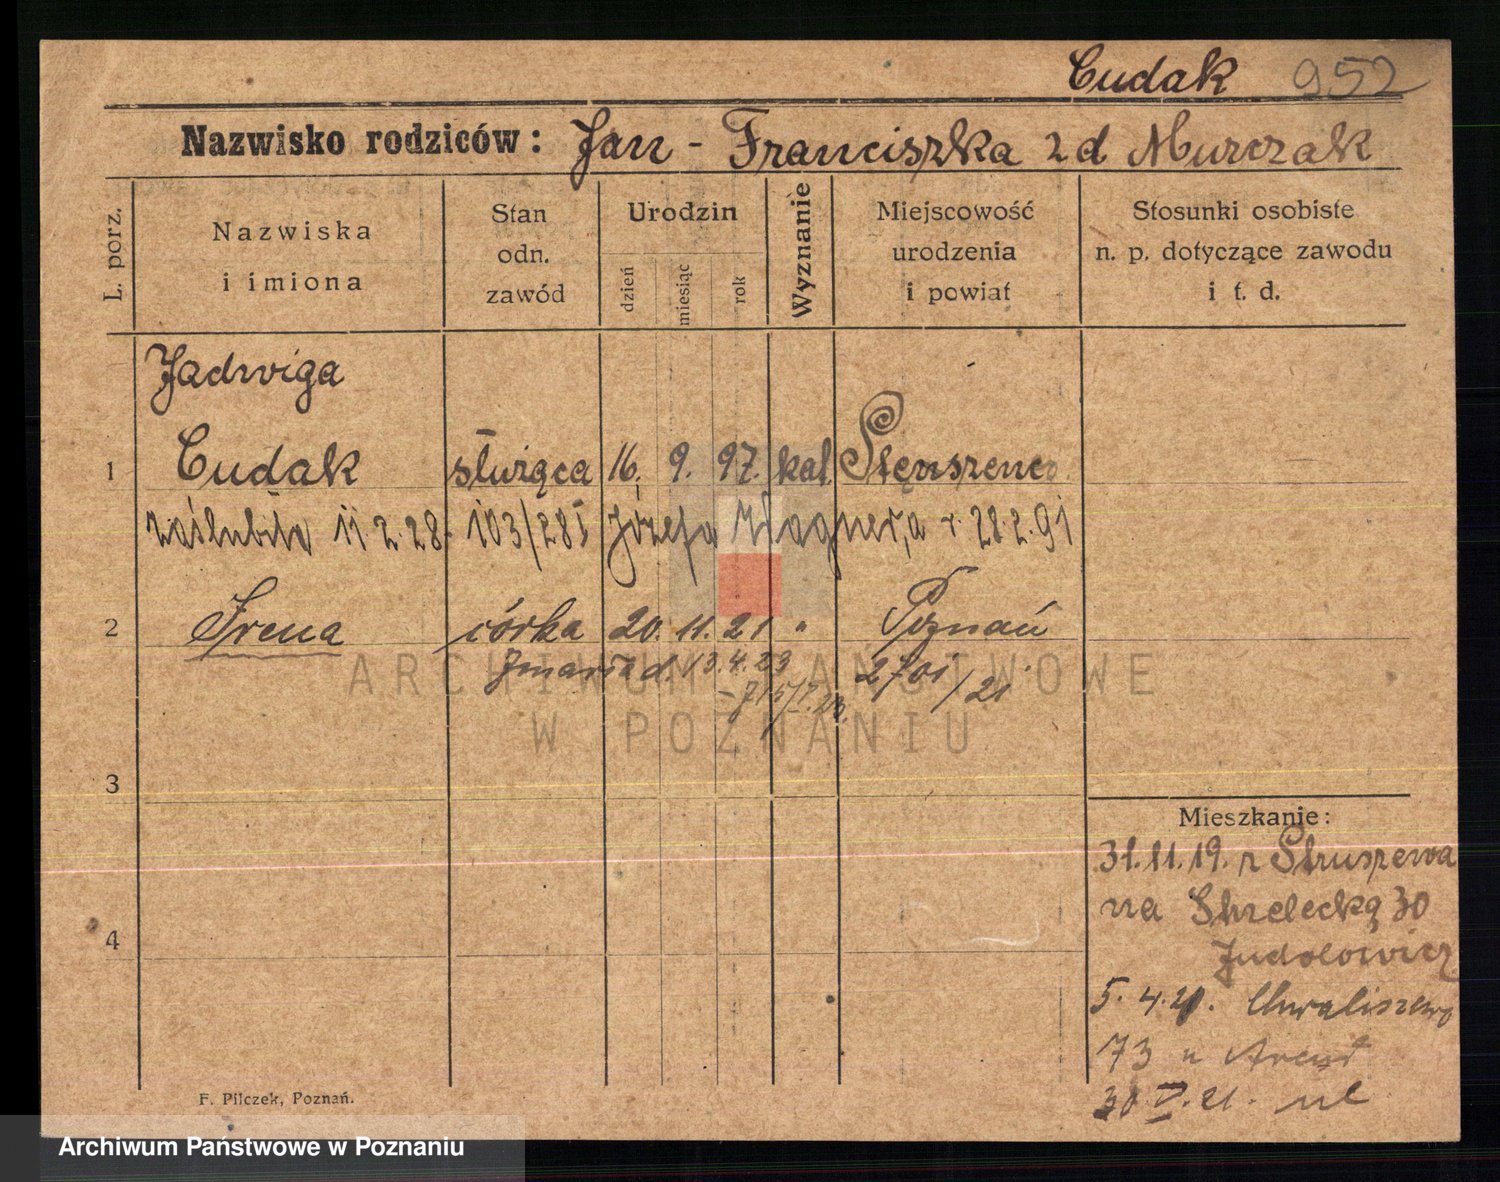 Cudak 952
Nazwisko rodziców: Jan - Franciszka zd Murczak
L. porz.
Nazwiska
i imiona
Stan
odn.
zawód
Urodzin
dzień
miesiąc
rok
Wyznanie
Miejscowość
urodzenia
i powiat
Stosunki osobiste
n. p. dotyczące zawodu
i t. d.
Jadwiga
1 Cudak służąca 16. 9. 97. kat.
zaślubiła 11.2.28. 103/28 I Józefa Wagner,a r. 28.2.91
2 Irena córka 20. 11. 21 " Poznań
zmarła d. 13.4.23 2701/21
3
4
Mieszkanie:
31.11.19. z Struszewa
na Strzelecką 30
5. 4. 21. Chwaliszewo
73 u
30 V. 21.
F. Pilczek, Poznań.
ARCHIWUM PAŃSTWOWE
W POZNANIU
Archiwum Państwowe w Poznaniu